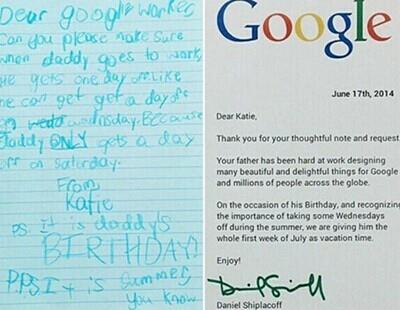 Dear google worker,
Can you please make sure
when daddy goes to work,
he gets one day off. Like
he can get get a day off
on wednsday. Because
daddy ONLY gets a day
off on saturday.
From,
Katie
P.S. It is daddy's
BIRTHDAY!
P.P.S. It is summer,
you know
Google
June 17th, 2014
Dear Katie,
Thank you for your thoughtful note and request.
Your father has been hard at work designing
many beautiful and delightful things for Google
and millions of people across the globe.
On the occasion of his Birthday, and recognizing
the importance of taking some Wednesdays
off during the summer, we are giving him the
whole first week of July as vacation time.
Enjoy!
Daniel Shiplacoff